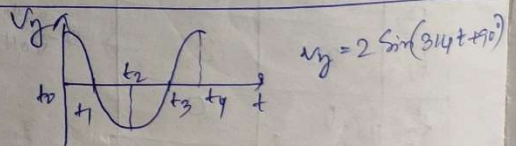 Vy
t0 t1 t2 t3 t4 t
Vy = 2 Sin(314t+90°)